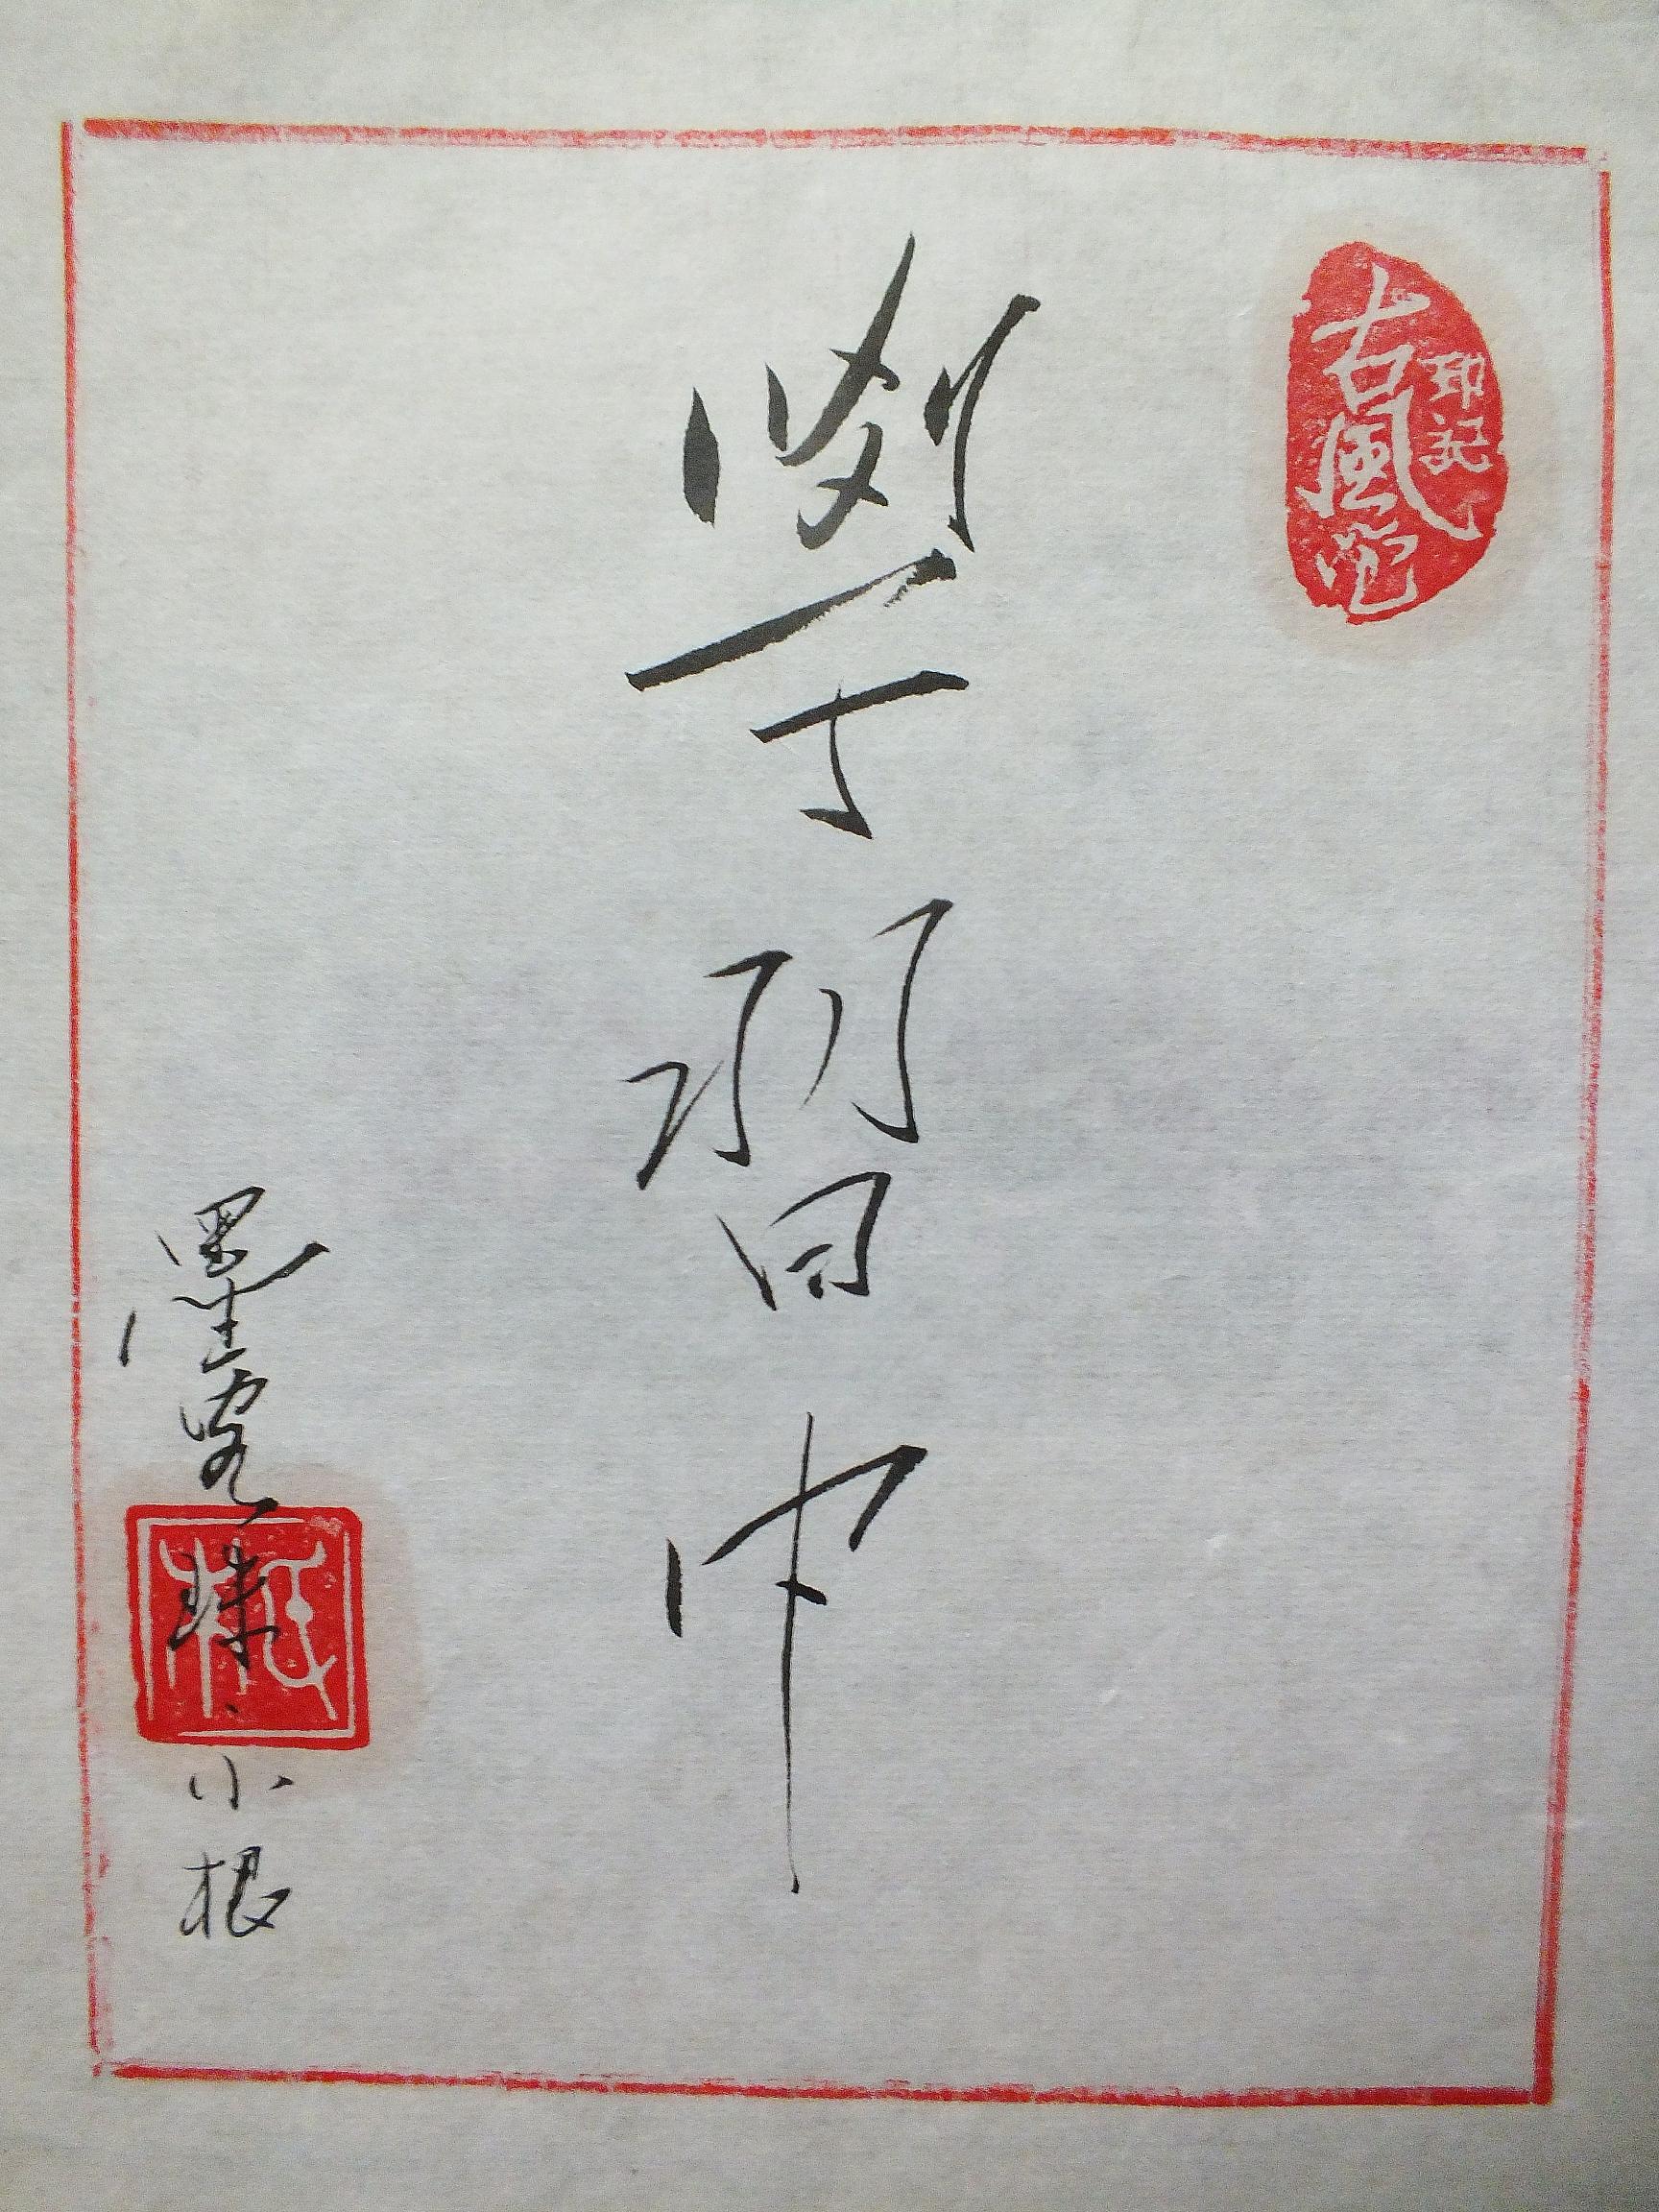 古風笔
印記
學習中
墨客
珠
小根